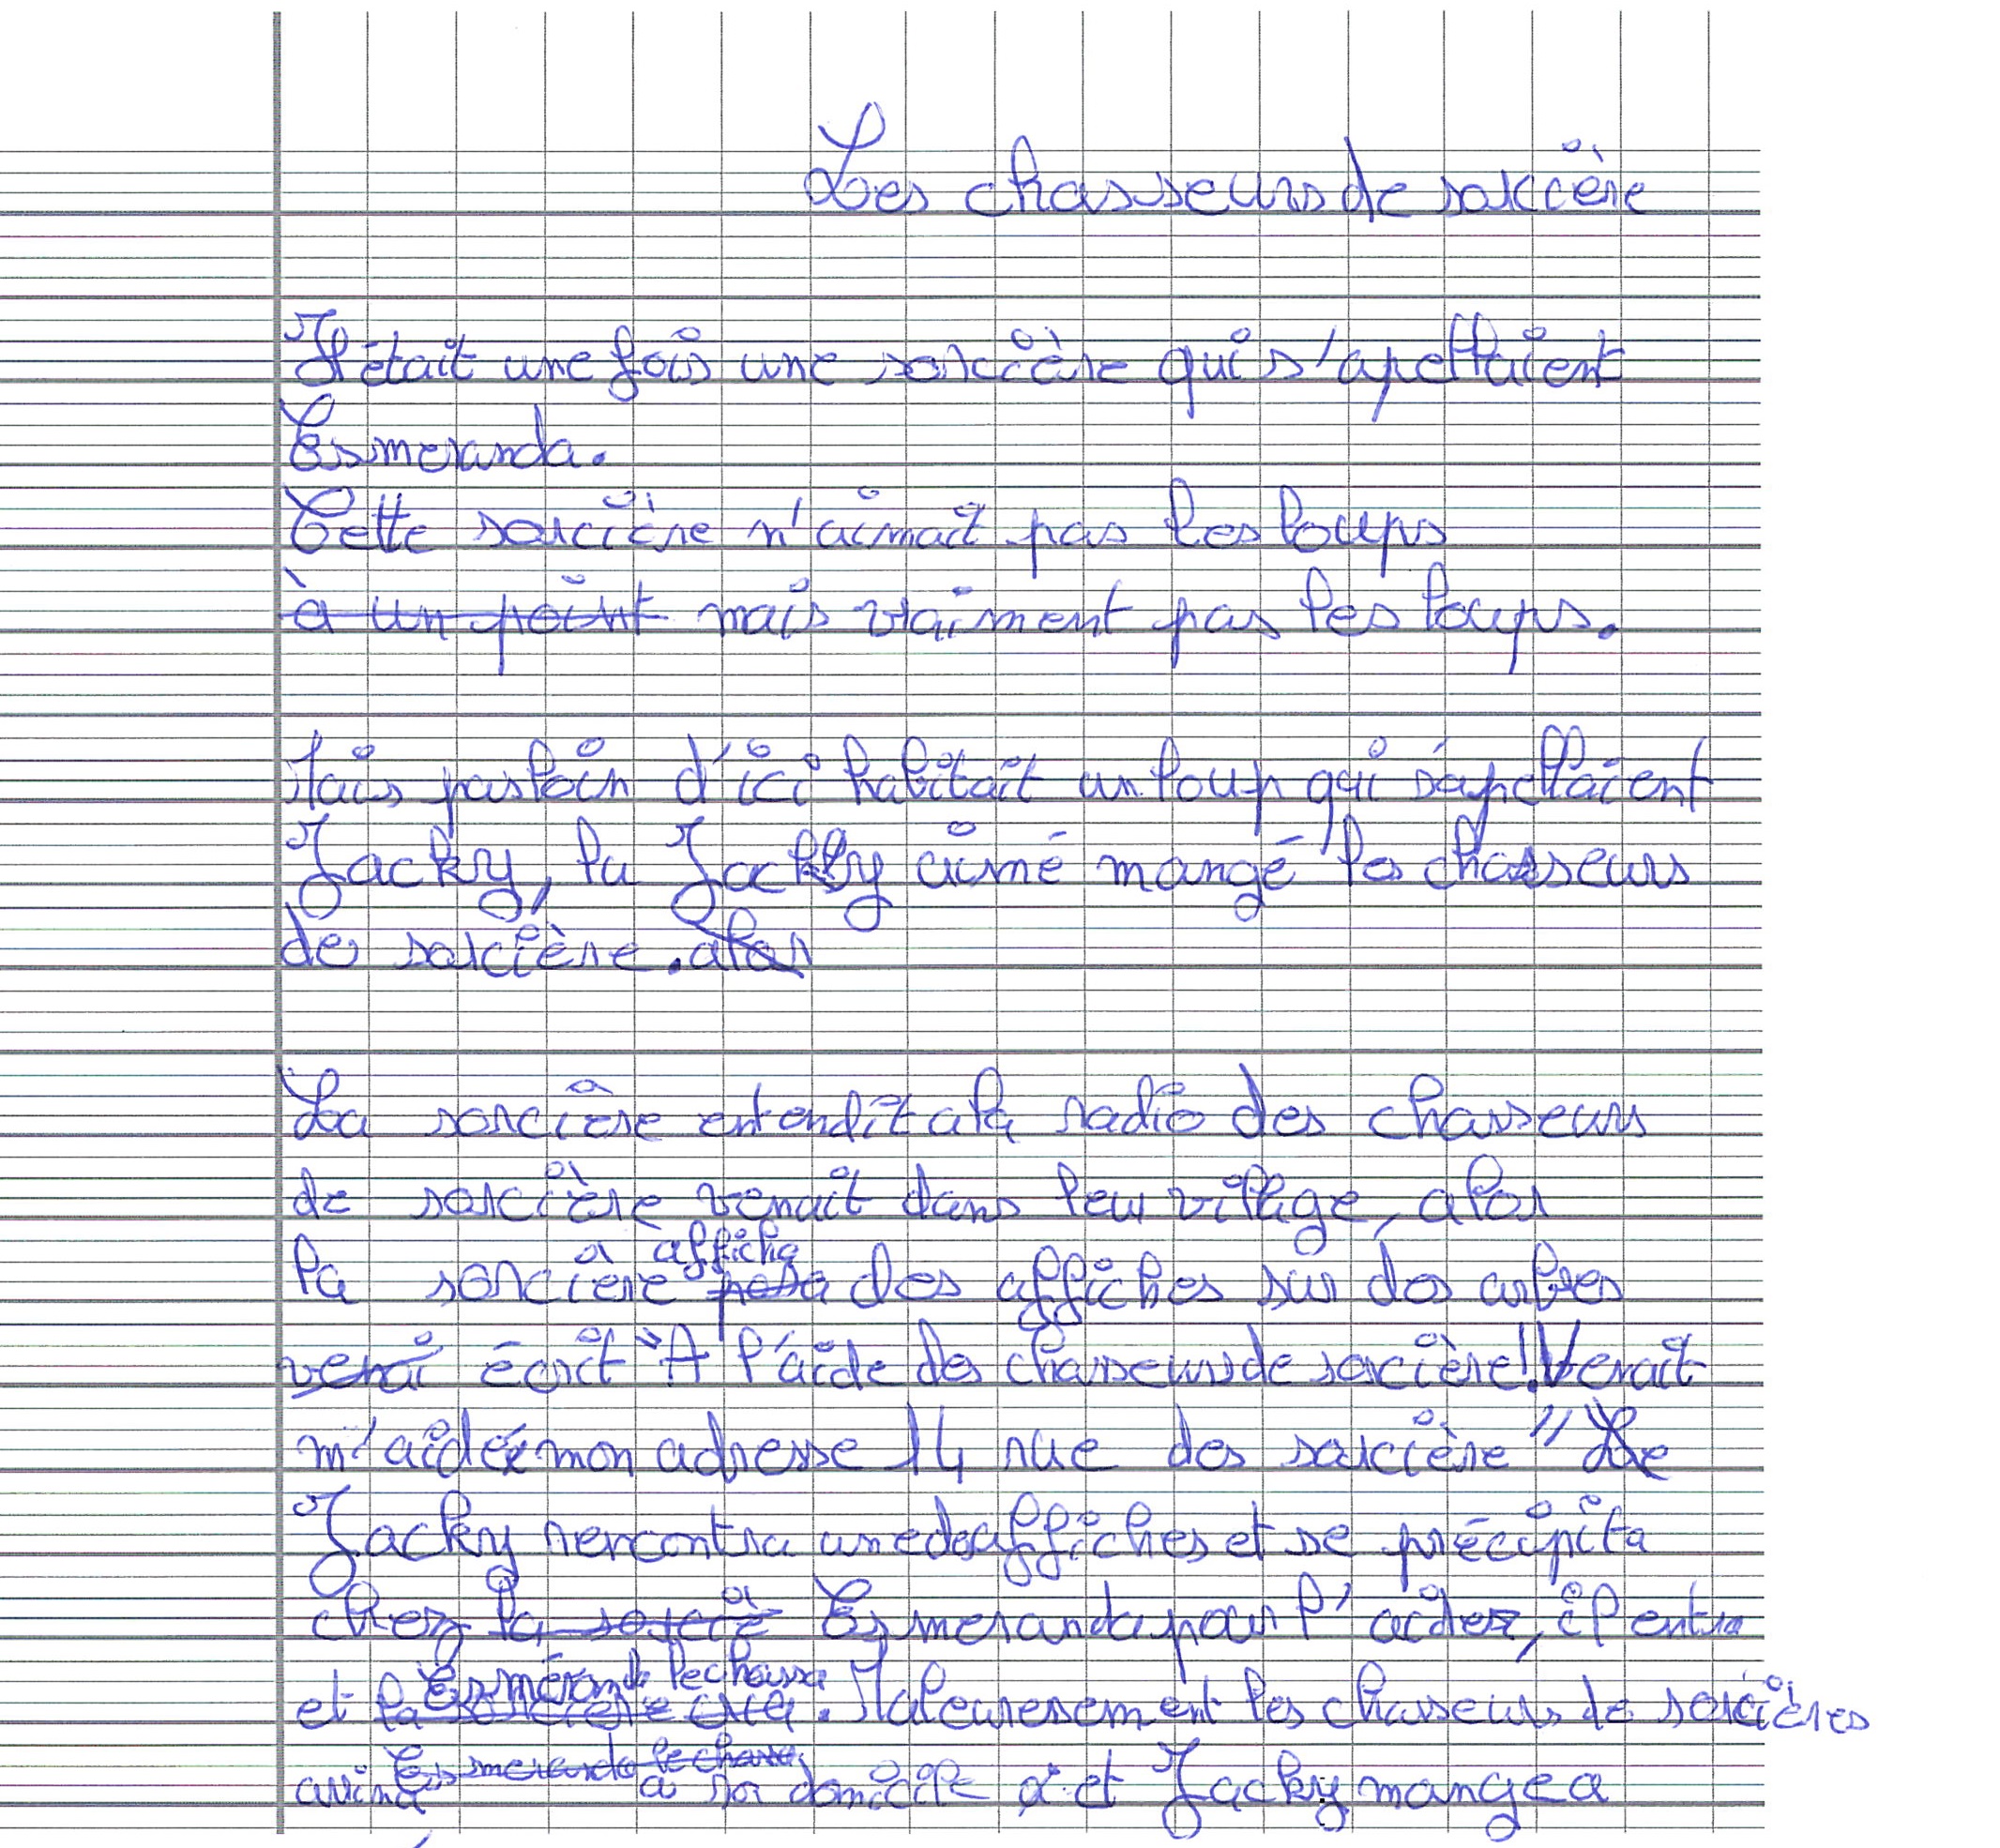 Les chasseurs de sorcière
Il était une fois une sorcière qui s'apellaient
Esmeranda.
Cette sorcière n'aimait pas les loups
à un point mais vraiment pas les loups.
Mais pas loin d'ici habitait un loup qui s'apellaient
Jacky, lu Jacky aimé mangé les chasseurs
de sorcière. alor
La sorcière entendit a la radio des chasseurs
de sorcière venait dans leur village, alor
afficha
la sorcière posa des affiches sur des arbres
venai écrit "A l'aide des chasseurs de sorcière! Venait
m'aidé mon adresse 14 rue des sorcière" Le
Jacky rencontra une des affiches et se précipita
chez la sorciè Esmeranda pour l'aider, il entra
Esméranda le chassa
et la sorcière cria. Maleuresement les chasseurs de sorcières
Esmeranda le chassa
arriva a son domicile et Jacky mangea